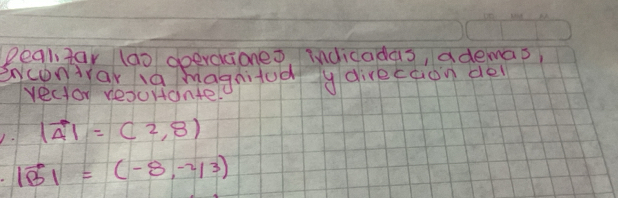 Realizar las operaciones indicadas, ademas,
encontrar la magnitud y dirección del
vector resultante.
1. |A⃗| = (2,8)
. |B⃗| = (-8,-2/3)